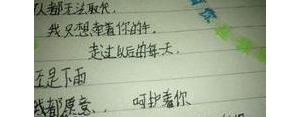 队都无法取代.
我只想牵着你的手.
走过以后的每天.
还是下雨
我都愿意、 呵护着你